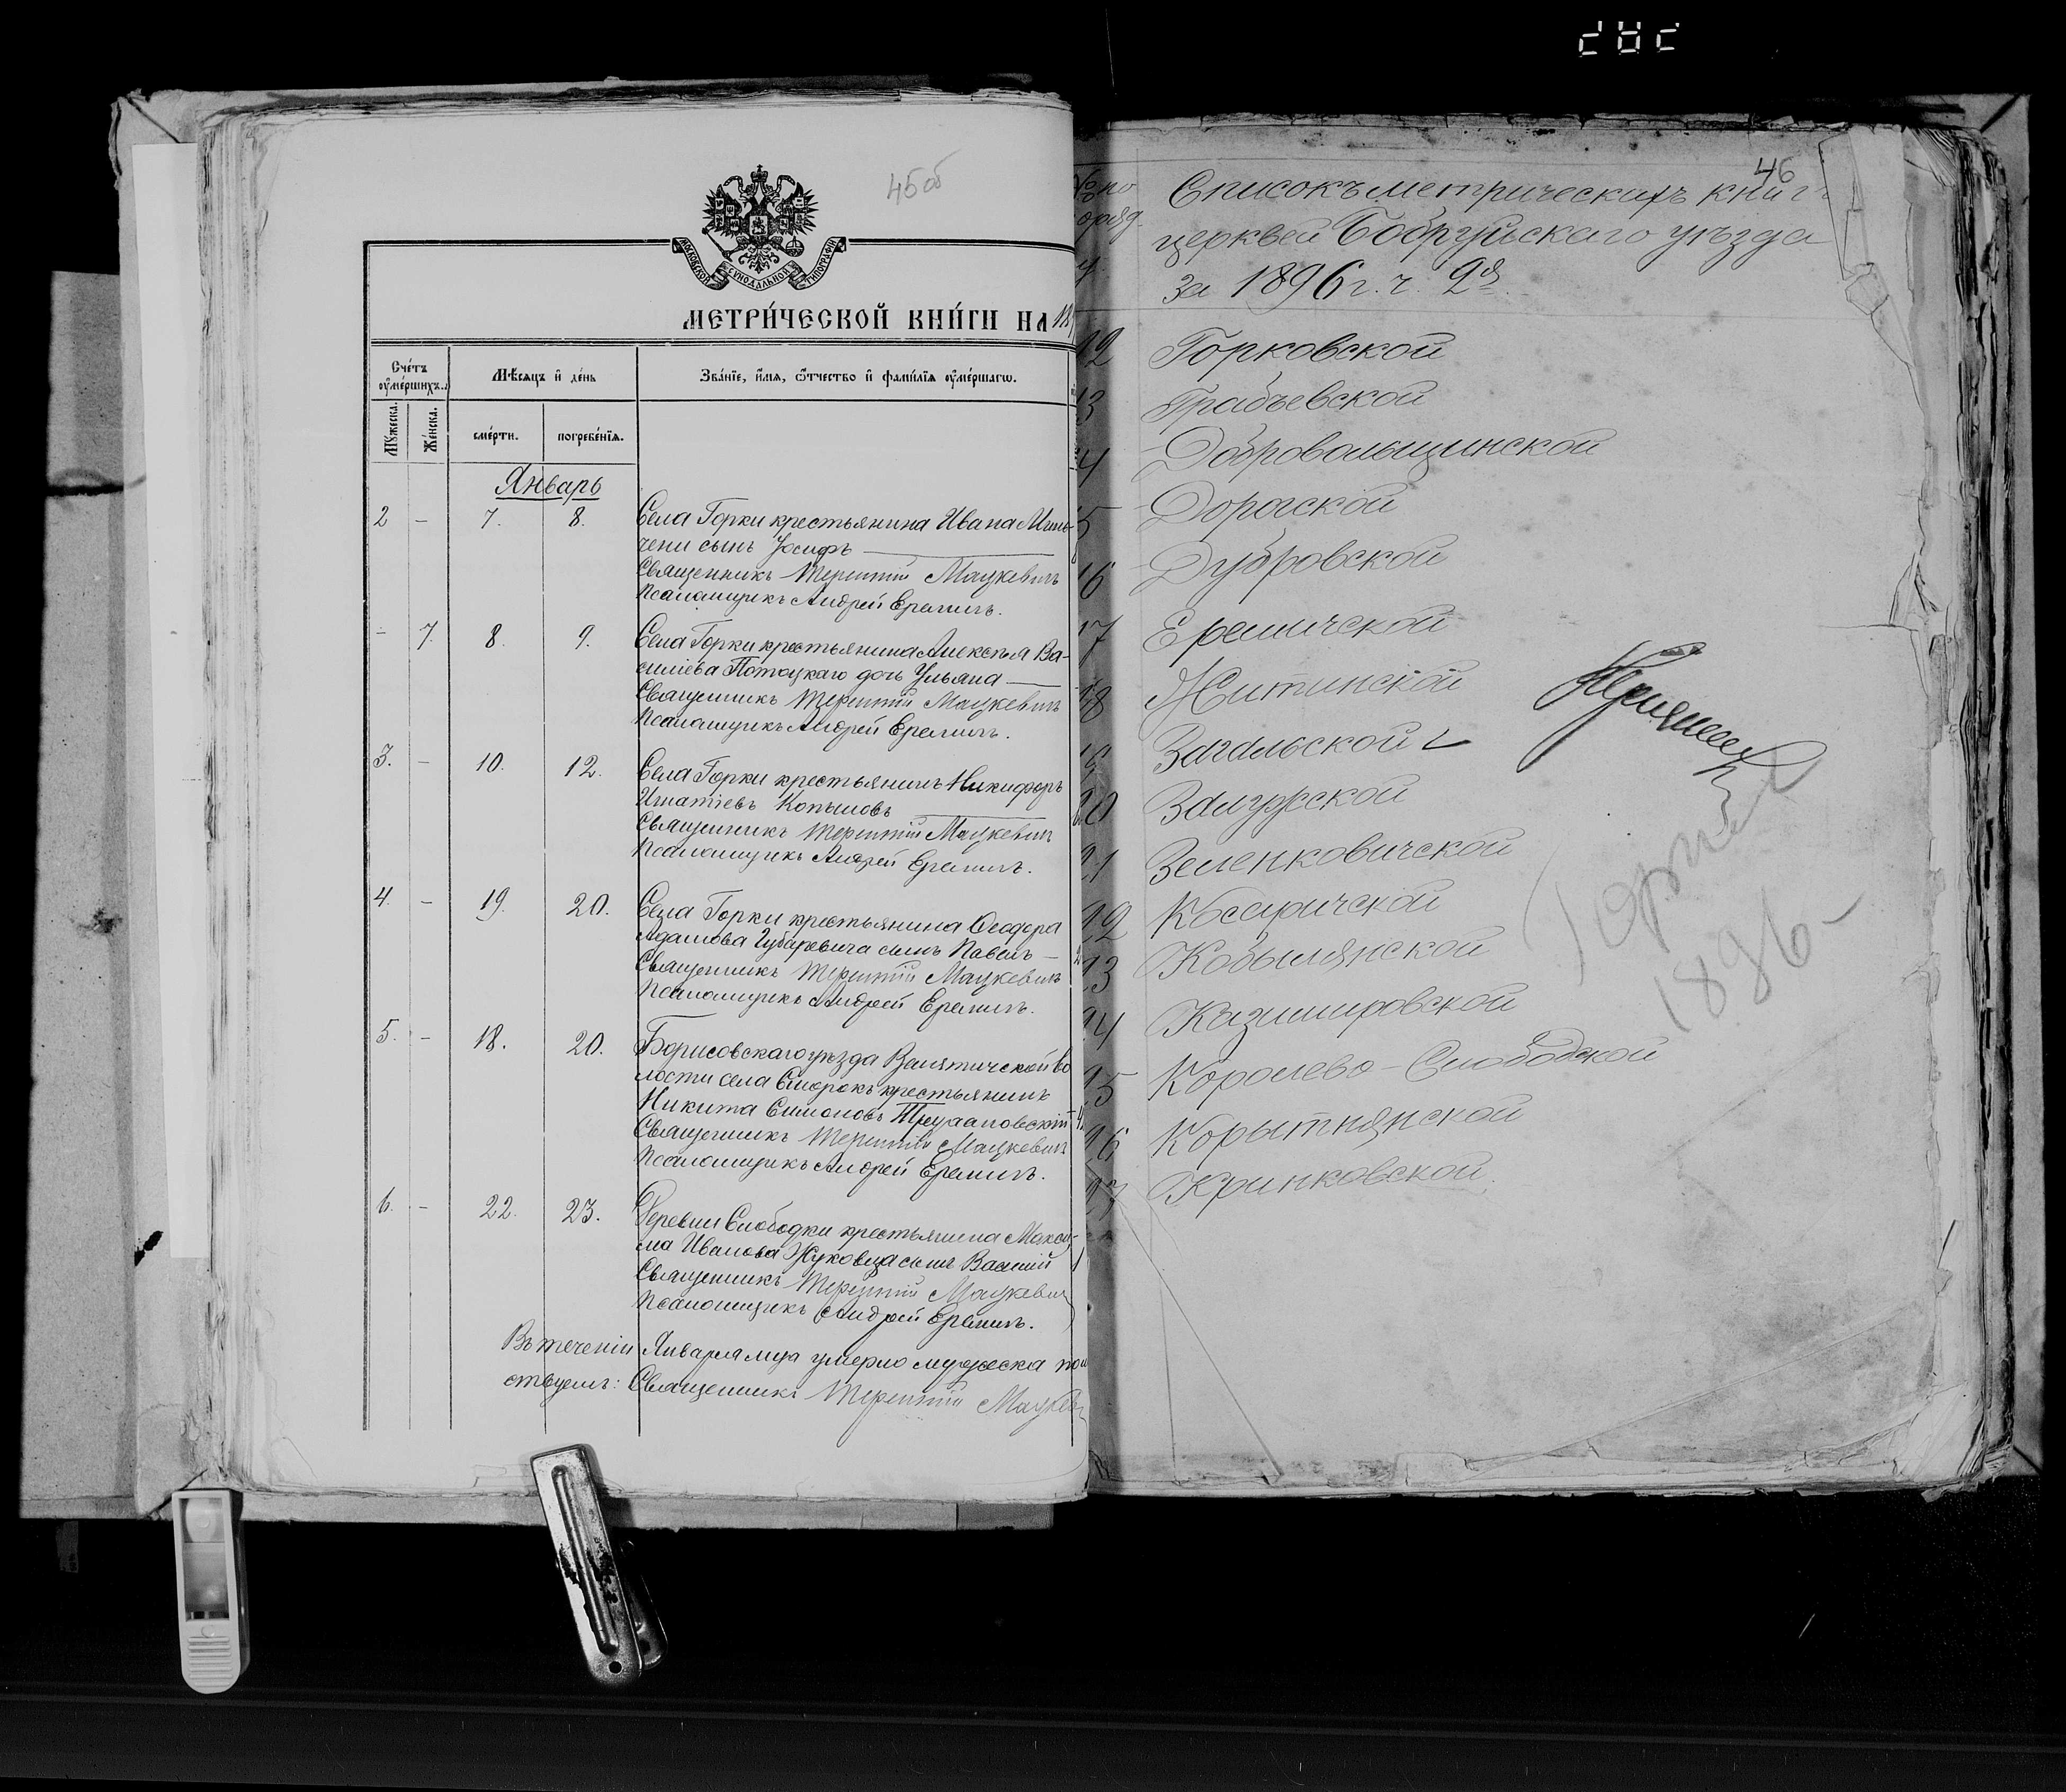 45об
МОСКОВСКОЙ СѴНОДАЛЬНОЙ ТИПОГРАФІИ
МЕТРИ́ЧЕСКОЙ КНИ́ГИ НА 18
Сче́тъ оу҆ме́ршихъ.
Мѣ́сяцъ и҆ де́нь
Зва́нїе, и҆́мя, ѻ҆́тчество и҆ фами́лїя оу҆ме́ршагѡ.
Мꙋ́жеска.
Же́нска.
сме́рти.
погребе́нїя.
Январь
2 - 7. 8. Села Горки крестьянина Ивана Минь-
чени сынъ Іосифъ
Священникъ Терентій Мацкевичъ
Псаломщикъ Андрей Еременъ.
- 7. 8. 9. Села Горки крестьянина Алексѣя Ва-
силіева Потоцкаго дочь Ульяна
Священникъ Терентій Мацкевичъ
Псаломщикъ Андрей Еременъ.
3. - 10. 12. Села Горки крестьянинъ Никифоръ
Игнатіевъ Копыловъ
Священникъ Терентій Мацкевичъ
Псаломщикъ Андрей Еременъ.
4. - 19. 20. Села Горки крестьянина Ѳеодора
Адамова Губаревича сынъ Павелъ
Священникъ Терентій Мацкевичъ
Псаломщикъ Андрей Еременъ.
5. - 18. 20. Борисовскаго уѣзда во
лости села крестьянинъ
Никита Симоновъ
Священникъ Терентій Мацкевичъ
Псаломщикъ Андрей Еременъ.
6. - 22. 23. Деревни Слободки крестьянина Макси-
ма Иванова Жуковца сынъ Василій
Священникъ Терентій Мацкевичъ
Псаломщикъ Андрей Еременъ.
Въ теченіи Января мца умерло мужеска пол
ствуемъ: Священникъ Терентій Мацкев
46
№ по
Списокъ метрическихъ книгъ
церквей Бобруйскаго уѣзда
за 1896 г. ч. 2я
12 Горковской
13 Грабьевской
14 Добровольщинской
15 Дорогской
16 Дубровской
17 Еремичской
18 Житинской
19 Загальской
20 Залужской
21 Зеленковичской
22 Косаричской
23 Кобылянской
24 Казимировской
25 Королево-Слободской
26 Корытнянской
27 Кринковской.
1896-